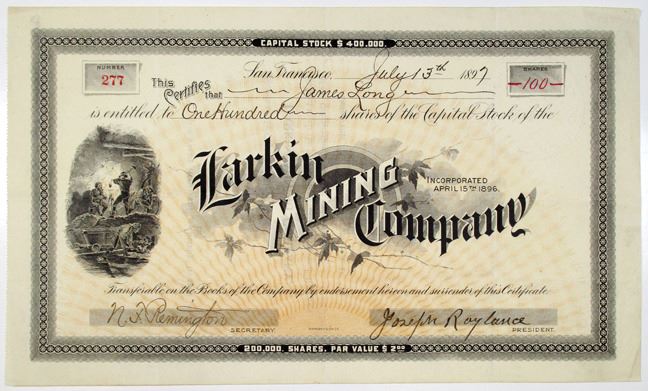 CAPITAL STOCK $ 400,000.
NUMBER
277
San Francisco, July 13th 1897
SHARES
100
This Certifies that James Long
is entitled to One Hundred shares of the Capital Stock of the
Larkin
MINING
Company
INCORPORATED
APRIL 15TH 1896.
Transferable on the Books of the Company by endorsement hereon and surrender of this Certificate.
N. F. Remington
SECRETARY.
Joseph Roylance
PRESIDENT.
200,000. SHARES, PAR VALUE $ 2.00